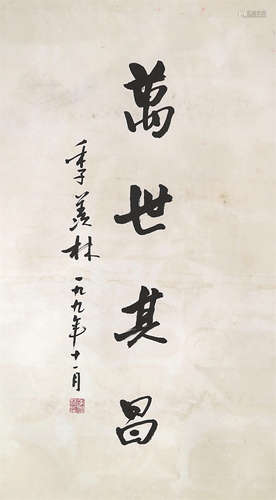 萬世其昌
季羨林 一九九九年十一月